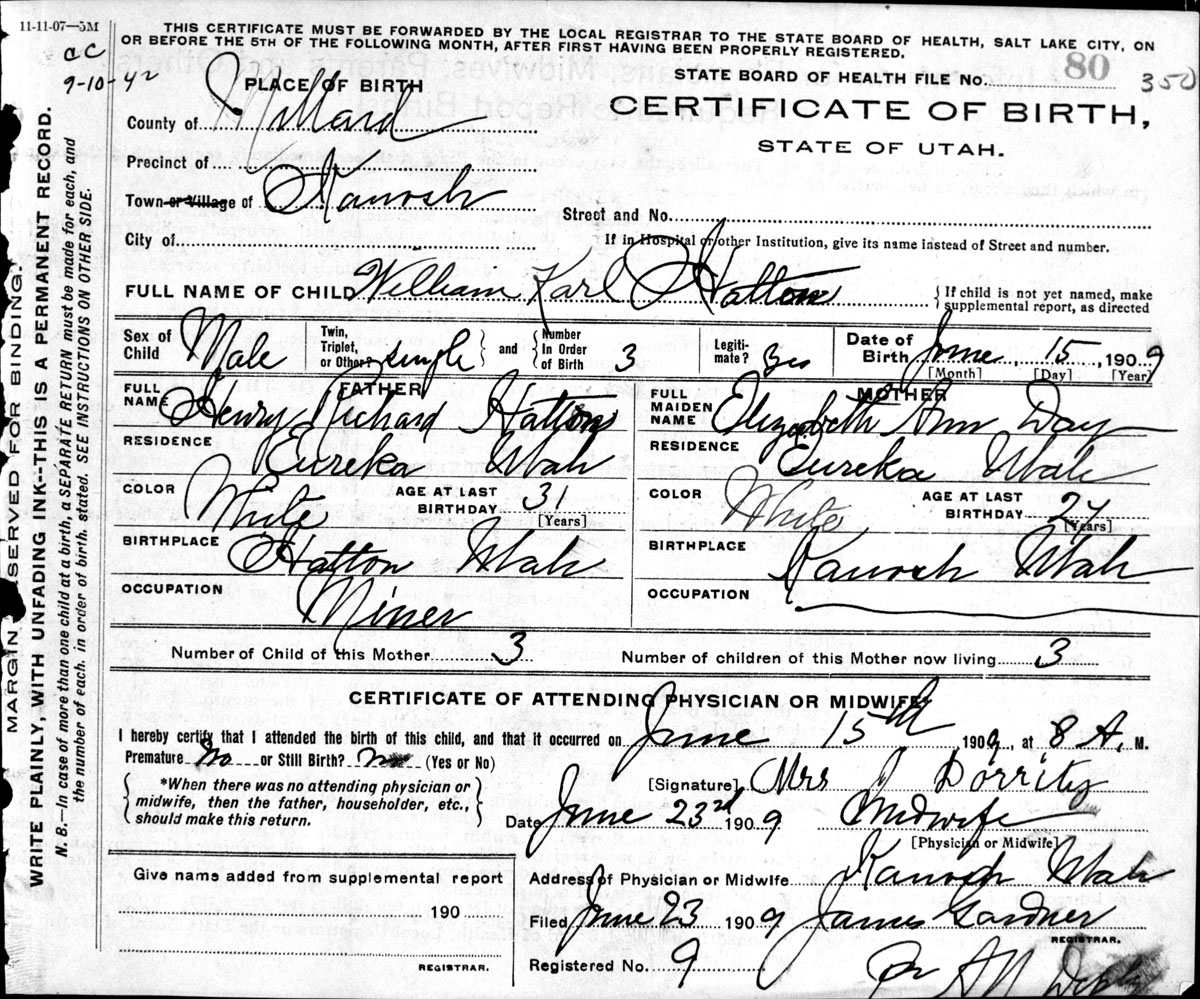 11-11-07—5M
THIS CERTIFICATE MUST BE FORWARDED BY THE LOCAL REGISTRAR TO THE STATE BOARD OF HEALTH, SALT LAKE CITY, ON
OR BEFORE THE 5TH OF THE FOLLOWING MONTH, AFTER FIRST HAVING BEEN PROPERLY REGISTERED.
ac
9-10-42
STATE BOARD OF HEALTH FILE No. 80 350
PLACE OF BIRTH
CERTIFICATE OF BIRTH,
STATE OF UTAH.
County of Millard
Precinct of
Town or Village of Kanosh
Street and No.
City of
If in Hospital or other Institution, give its name instead of Street and number.
FULL NAME OF CHILD William Karl Hatton
{ If child is not yet named, make
supplemental report, as directed
Sex of Child Male Twin, Triplet, or Other? single and Number In Order of Birth 3 Legiti-mate? yes Date of Birth June 15, 1909
[Month] [Day] [Year]
FATHER
MOTHER
FULL NAME Henry Richard Hatton
FULL MAIDEN NAME Elizabeth Ann Day
RESIDENCE Eureka Utah
RESIDENCE Eureka Utah
COLOR White AGE AT LAST BIRTHDAY 31 [Years]
COLOR White AGE AT LAST BIRTHDAY 27 [Years]
BIRTHPLACE Hatton Utah
BIRTHPLACE Kanosh Utah
OCCUPATION Miner
OCCUPATION
Number of Child of this Mother 3 Number of children of this Mother now living 3
CERTIFICATE OF ATTENDING PHYSICIAN OR MIDWIFE
I hereby certify that I attended the birth of this child, and that it occurred on June 15th, 1909, at 8 A. M.
Premature No or Still Birth? No (Yes or No)
*When there was no attending physician or
midwife, then the father, householder, etc.,
should make this return.
[Signature] Mrs J Dorrity
Date June 23rd 1909 Midwife
[Physician or Midwife]
Give name added from supplemental report
190
REGISTRAR.
Address of Physician or Midwife Kanosh Utah
Filed June 23 1909 James Gardner
REGISTRAR.
Registered No. 9
MARGIN RESERVED FOR BINDING.
WRITE PLAINLY, WITH UNFADING INK--THIS IS A PERMANENT RECORD.
N. B.—In case of more than one child at a birth, a SEPARATE RETURN must be made for each, and
the number of each, in order of birth, stated. SEE INSTRUCTIONS ON OTHER SIDE.